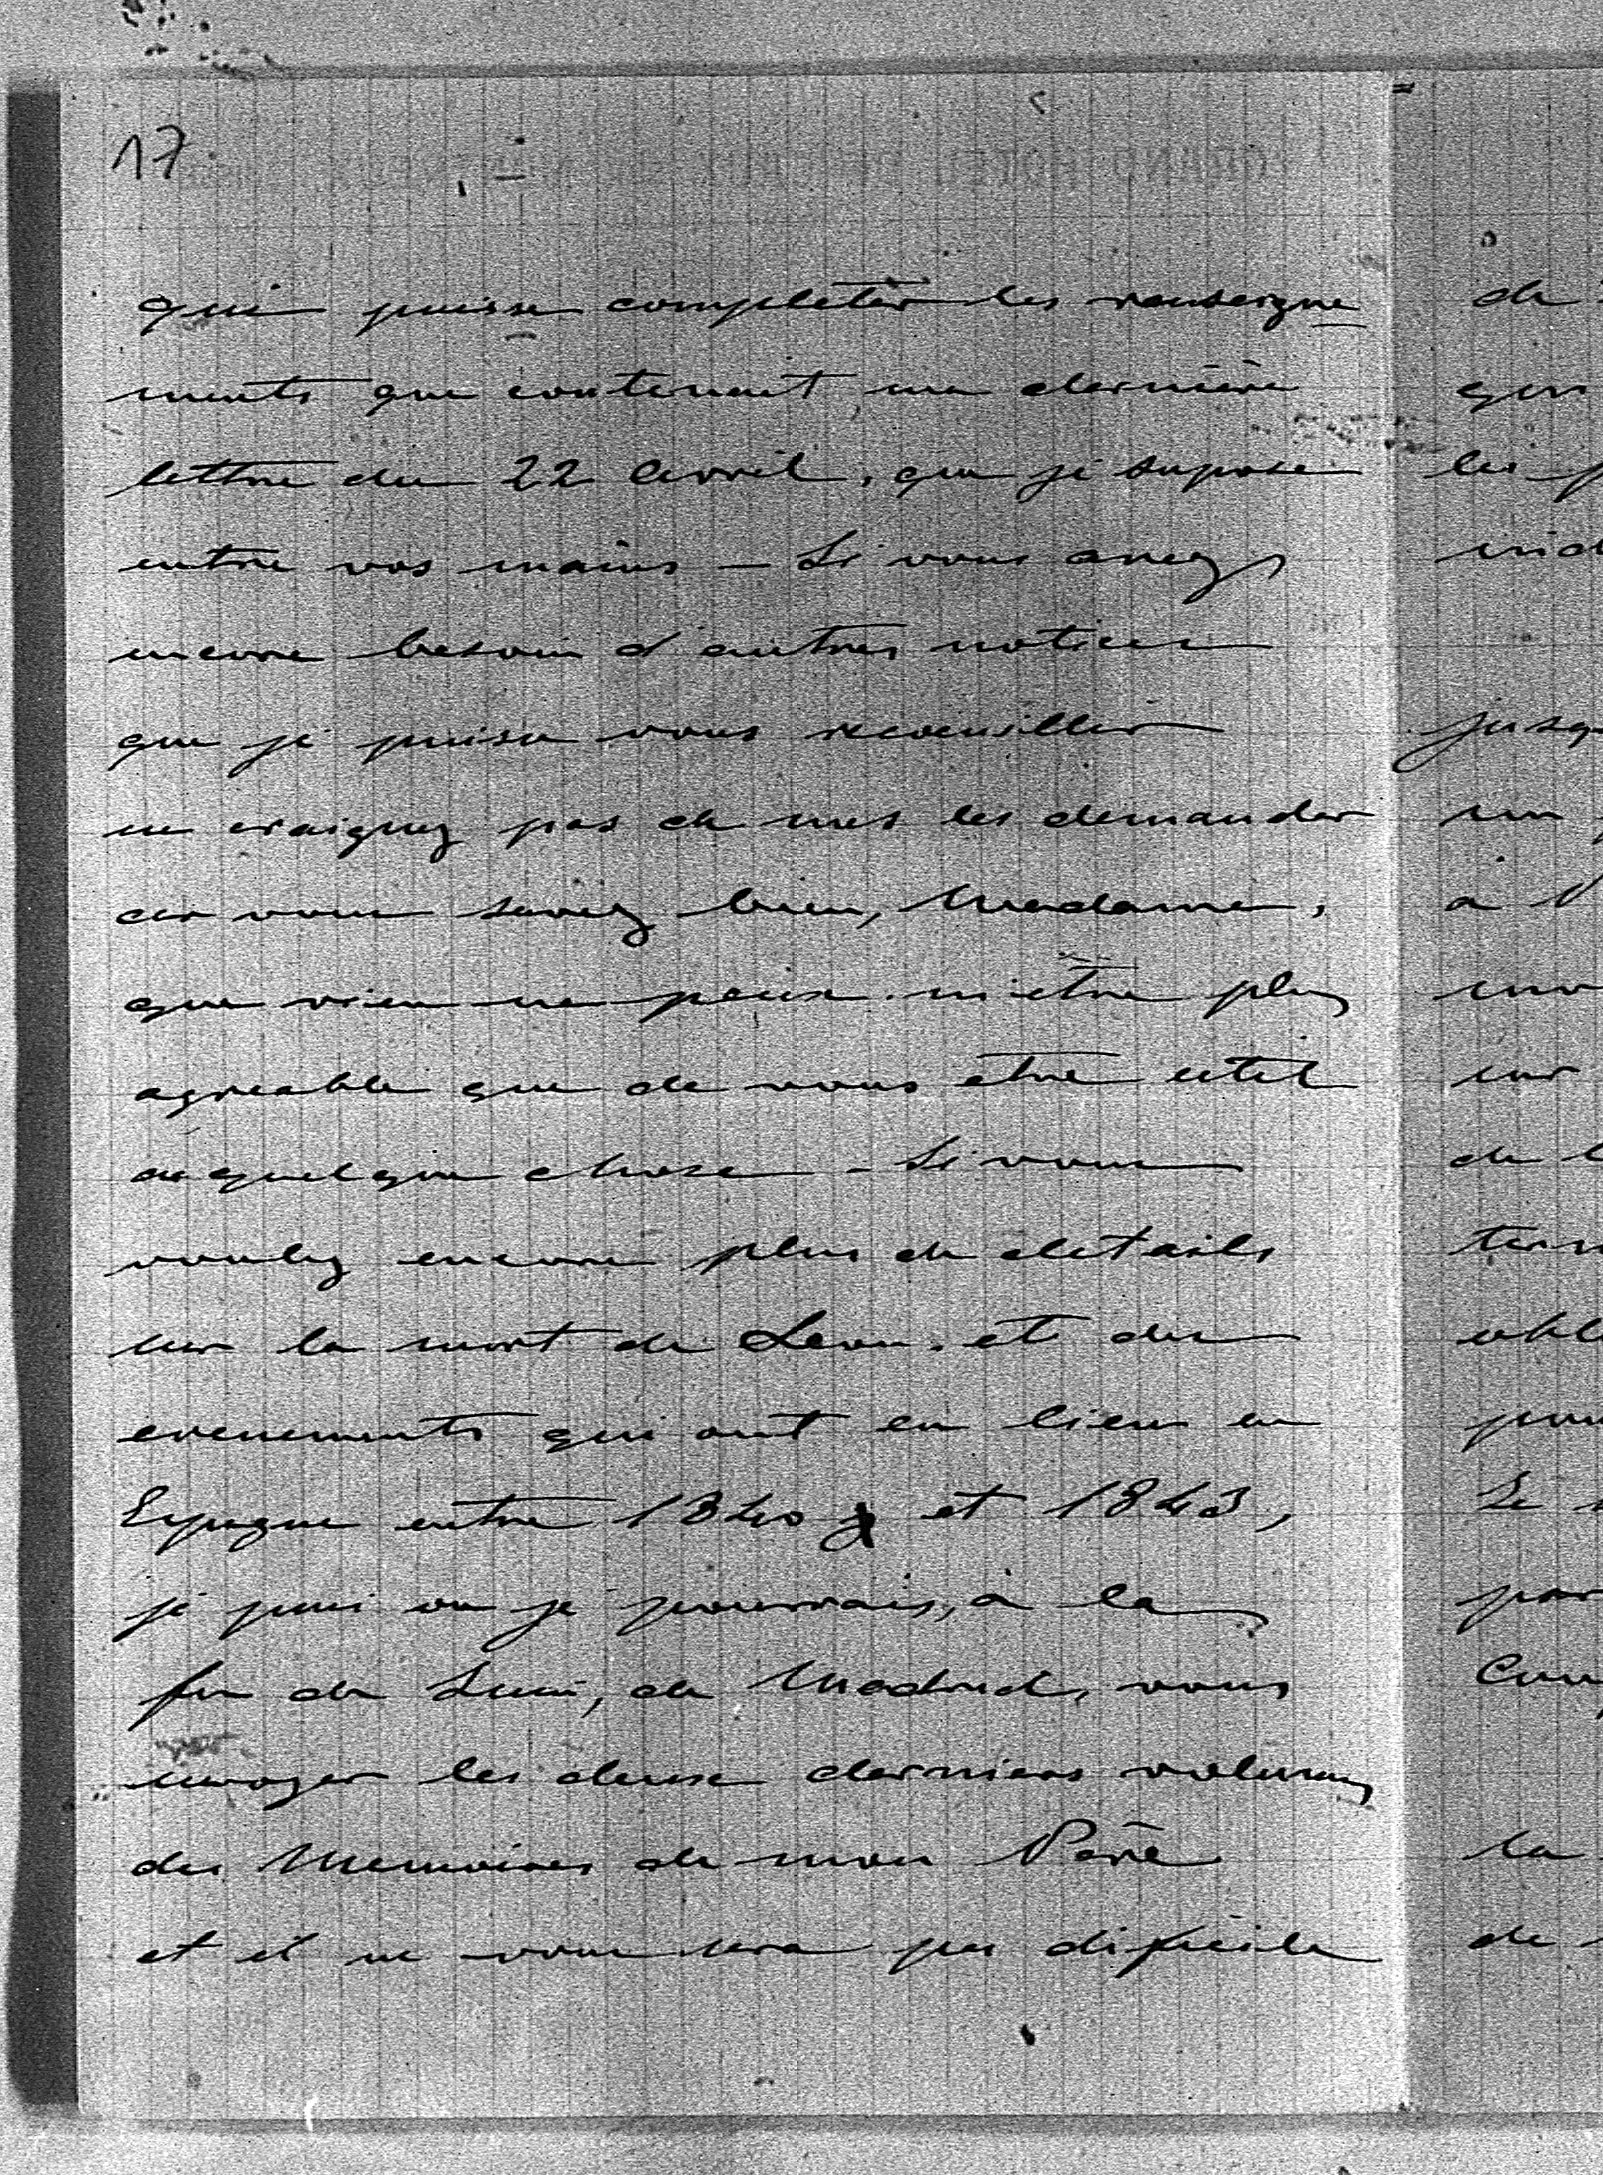 17
qui puisse completèr les renseigne
ments que contenait ma dernière
lettre du 22 Avril, que je supose
entre vos mains – Si vous avez
encore besoin d'autres notices
que je puisse vous receuillir
ne craignez pas de mes les demander
car vous savez bien, Madame,
que rien ne peux m'etre plus
agreable que de vous etre util
a quelque chose – Si vous
voulez encore plus de details
sur la mort de Leon. et des
evenements qui ont eu lieu en
Espagne entre 1840 et 1843,
je puis ou je pourrais, à la
fin de Juin, de Madrid, vous
envoyer les deuxe derniers volumes
des Memoires de mon Père
et il ne vous sera pas dificile